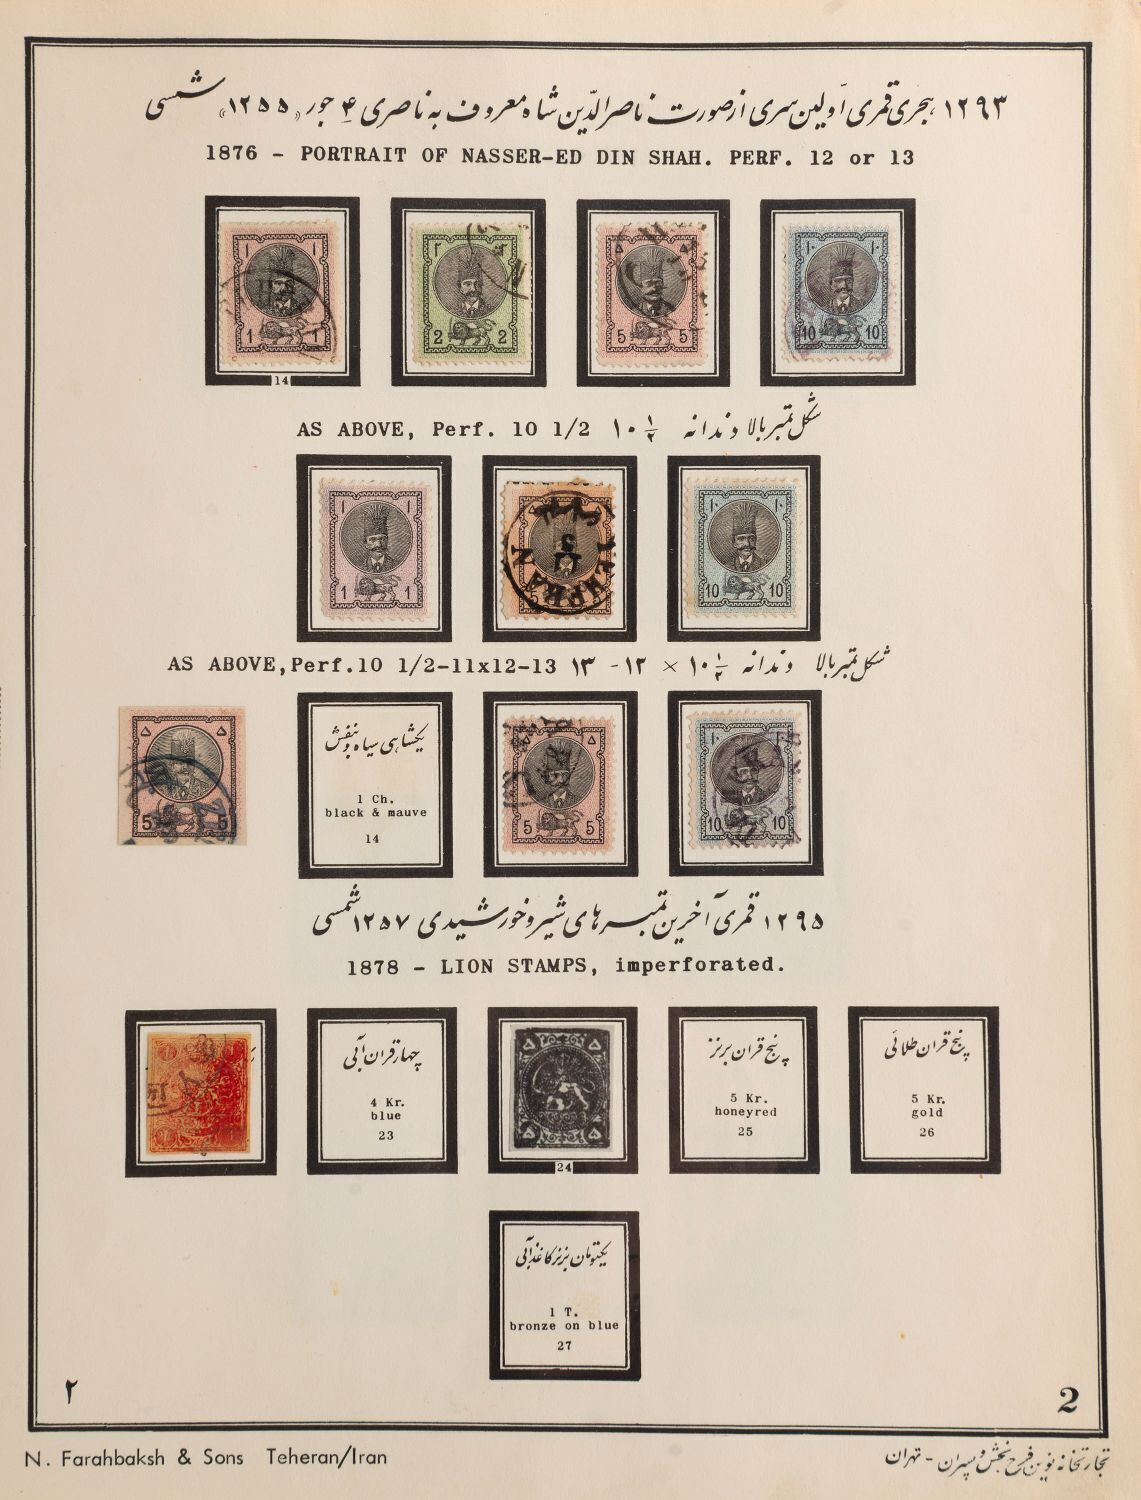 ۱۲۹۳ هجری قمری اولین سری از صورت ناصرالدّین شاه معروف به ناصری ۴ جور «۱۲۵۵» شمسی
1876 - PORTRAIT OF NASSER-ED DIN SHAH. PERF. 12 or 13
۱ ۱
۲ ۲
۵ ۵
۱۰ ۱۰
1 1
2 2
5 5
10 10
14
AS ABOVE, Perf. 10 1/2 ۱۰ ۱/۲ شکل تمبر بالا دندانه
۱ ۱
۱۰ ۱۰
1 1
TEHERAN
5
10 10
AS ABOVE, Perf.10 1/2-11x12-13 ۱۳ - ۱۲ × ۱۰ ۱/۲ شکل تمبر بالا دندانه
۵ ۵
5 5
یکشاهی سیاه و بنفش
1 Ch.
black & mauve
14
۵
5 5
۱۰
10 10
۱۲۹۵ قمری آخرین تمبرهای شیر و خورشیدی ۱۲۵۷ شمسی
1878 - LION STAMPS, imperforated.
چهار قران آبی
4 Kr.
blue
23
۵ ۵
۵ ۵
24
پنج قران برنز
5 Kr.
honeyred
25
پنج قران طلائی
5 Kr.
gold
26
یکتومان برنز کاغذ آبی
1 T.
bronze on blue
27
۲
2
N. Farahbaksh & Sons Teheran/Iran
تجارتخانه نوین فرح بخش و پسران - تهران